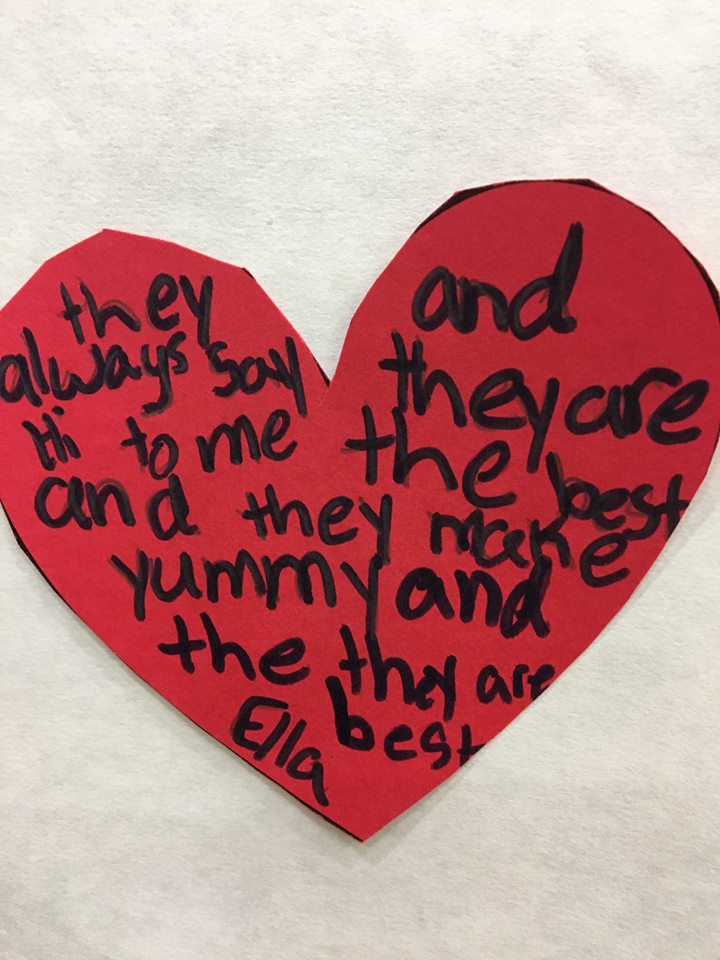 they
always say
Hi to me
and they make
yummy and
the they are
best
Ella
and
they are
the best